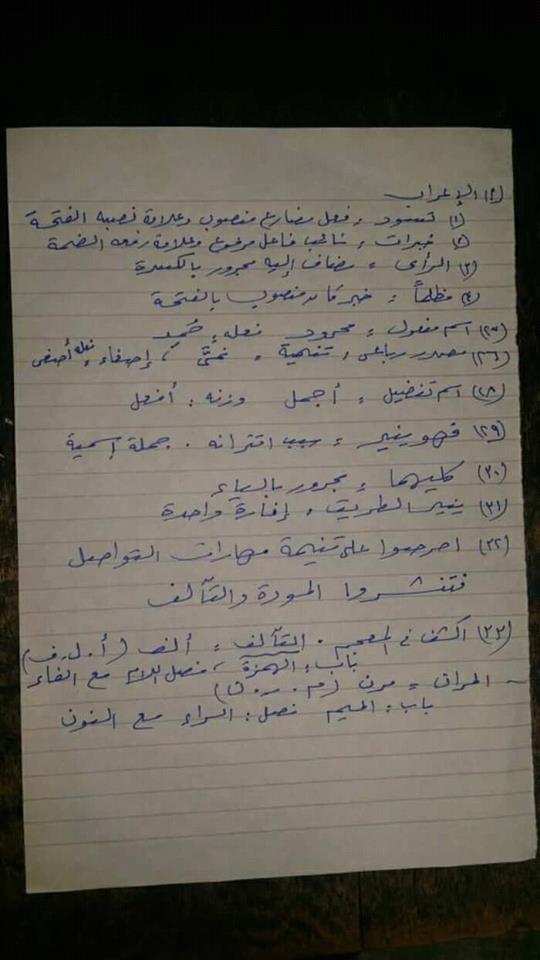 (٢) الإعراب
(١) تسود : فعل مضارع منصوب وعلامة نصبه الفتحة
(٢) خبرات : نائب فاعل مرفوع وعلامة رفعه الضمة
(٣) الرأى : مضاف إليه مجرور بالكسرة
(٤) مظلماً : خبر كان منصوب بالفتحة
(٢٧) اسم مفعول : محمود فعله : حُمِد
(٢٦) مصدر رباعى : تنمية : نمَّى ، إصغاء : فعله أصغى
(٢٨) اسم تفضيل : أجمل وزنه : أفعل
(٢٩) فهو ينير : سبب اقترانه . جملة إسمية
(٣٠) كليهما : مجرور بالياء
(٣١) ينير الطريق : إنارة واحدة
(٣٢) احرصوا على تنمية مهارات التواصل
فتنشروا المودة والتآلف
(٣٣) اكشف فى المعجم . التآلف : ألف (أ . ل . ف)
باب : الهمزة ، فصل اللام مع الفاء
- المران : مرن (م . ر . ن)
باب : الميم فصل : الراء مع النون